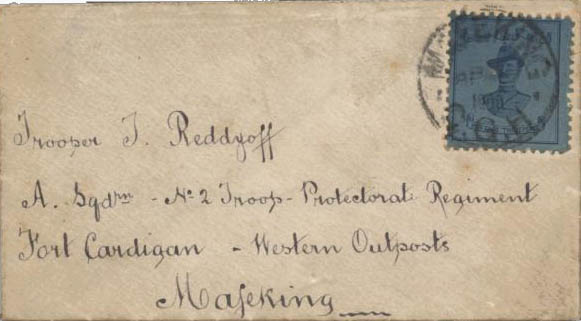 MAFEKING
AP
1900
C.G.H.
Trooper T. Reddyoff
A. Sqdrn - No 2 Troop - Protectorat Regiment
Fort Cardigan - Western Outposts
Mafeking